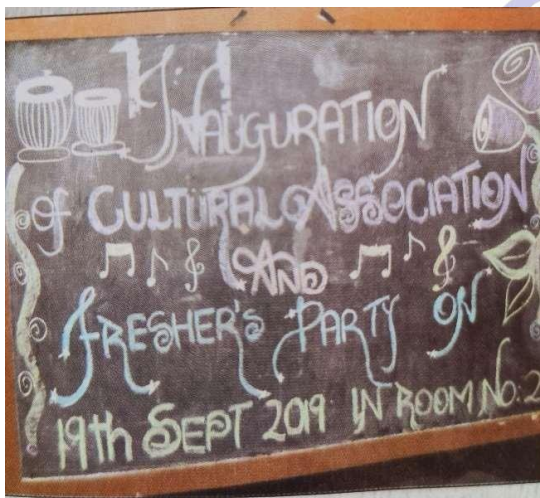 INAUGURATION
of CULTURAL ASSOCIATION
AND
FRESHER'S PARTY ON
19th SEPT 2019 IN ROOM NO: 2